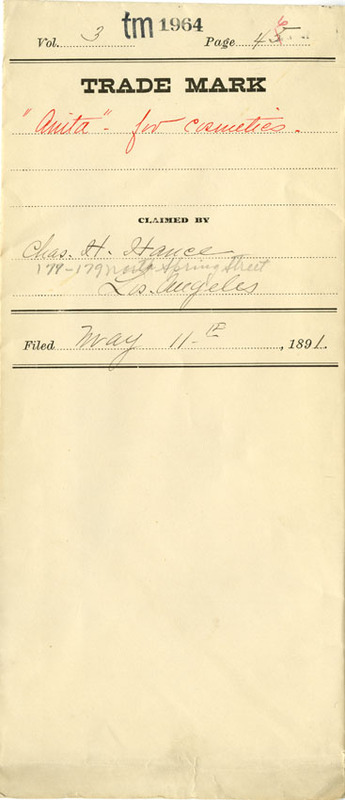 Vol. 3 tm 1964 Page 46
TRADE MARK
"Anita" - for cosmetics.
CLAIMED BY
Chas. H. Hance
177-179 North Spring Street
Los Angeles
Filed May 11th, 1891.